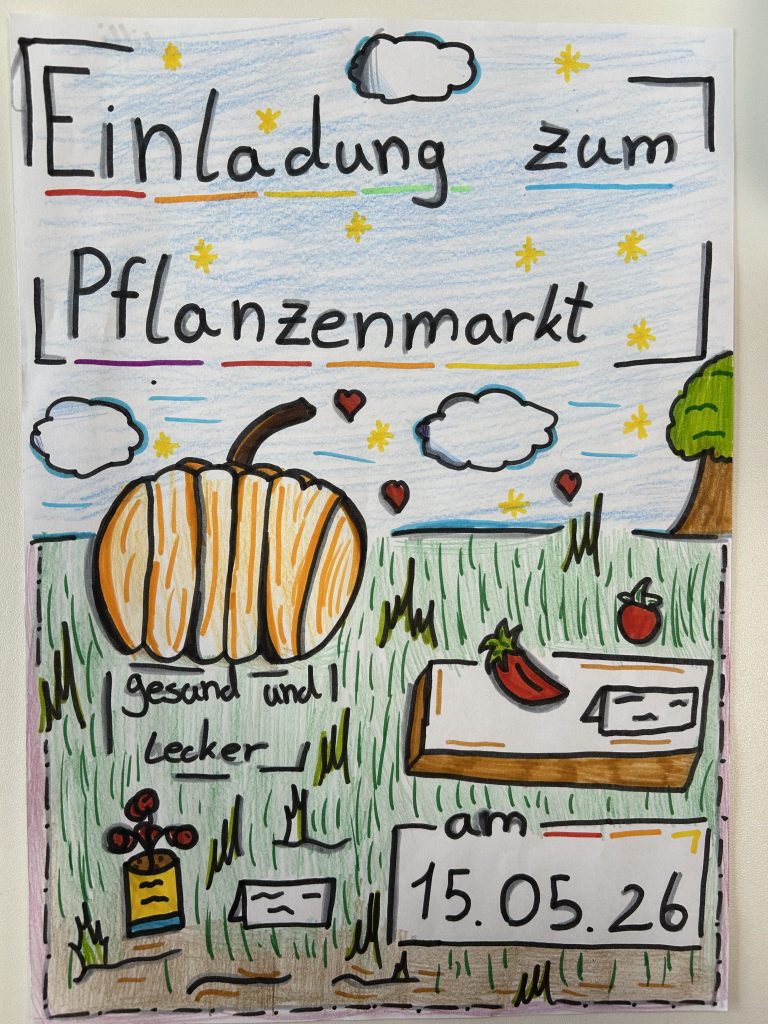 Einladung zum
Pflanzenmarkt
gesund und
Lecker
am
15.05.26